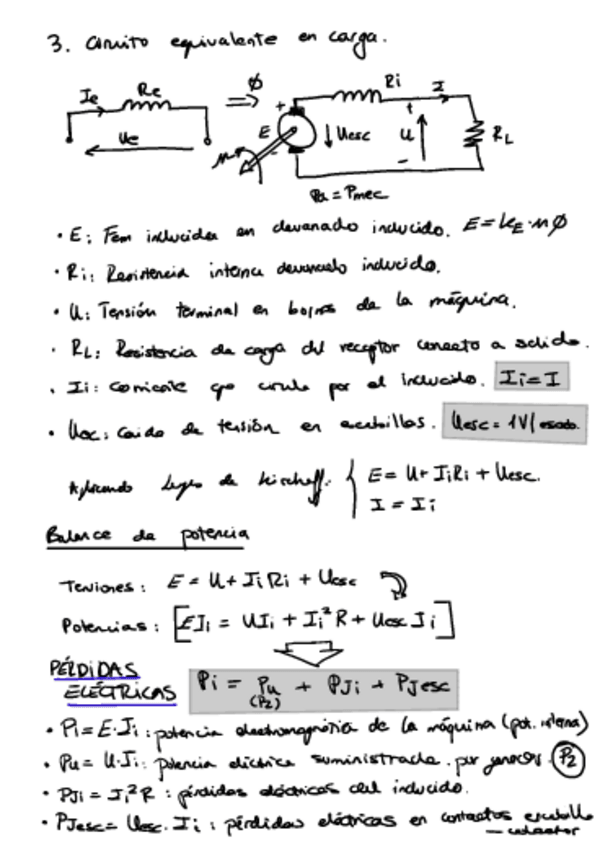 3. Circuito equivalente en carga.
Ie Re ⇒ ϕ Ri I
+ E Uesc + U RL
Ue n - -
Pa = Pmec
• E: Fem inducida en devanado inducido. E = kE·nϕ
• Ri: Resistencia interna devanado inducido.
• U: Tensión terminal en bornes de la máquina.
• RL: Resistencia de carga del receptor conecto a salida.
• Ii: Corriente que circula por el inducido. Ii = I
• Uesc: Caida de tensión en escobillas. Uesc = 1V/escob.
Aplicando Leyes de Kirchoff: { E = U + IiRi + Uesc.
I = Ii
Balance de potencia
Tensiones: E = U + IiRi + Uesc
Potencias: [EIi = UIi + Ii²R + Uesc Ii]
PÉRDIDAS
ELÉCTRICAS Pi = Pu + PJi + PJesc
(P2)
• Pi = E·Ii: potencia electromagnética de la máquina (pot. interna)
• Pu = U·Ii: potencia eléctrica suministrada por P2
• PJi = Ii²R: pérdidas eléctricas del inducido.
• PJesc = Uesc·Ii: pérdidas eléctricas en contactos escobilla
— colector